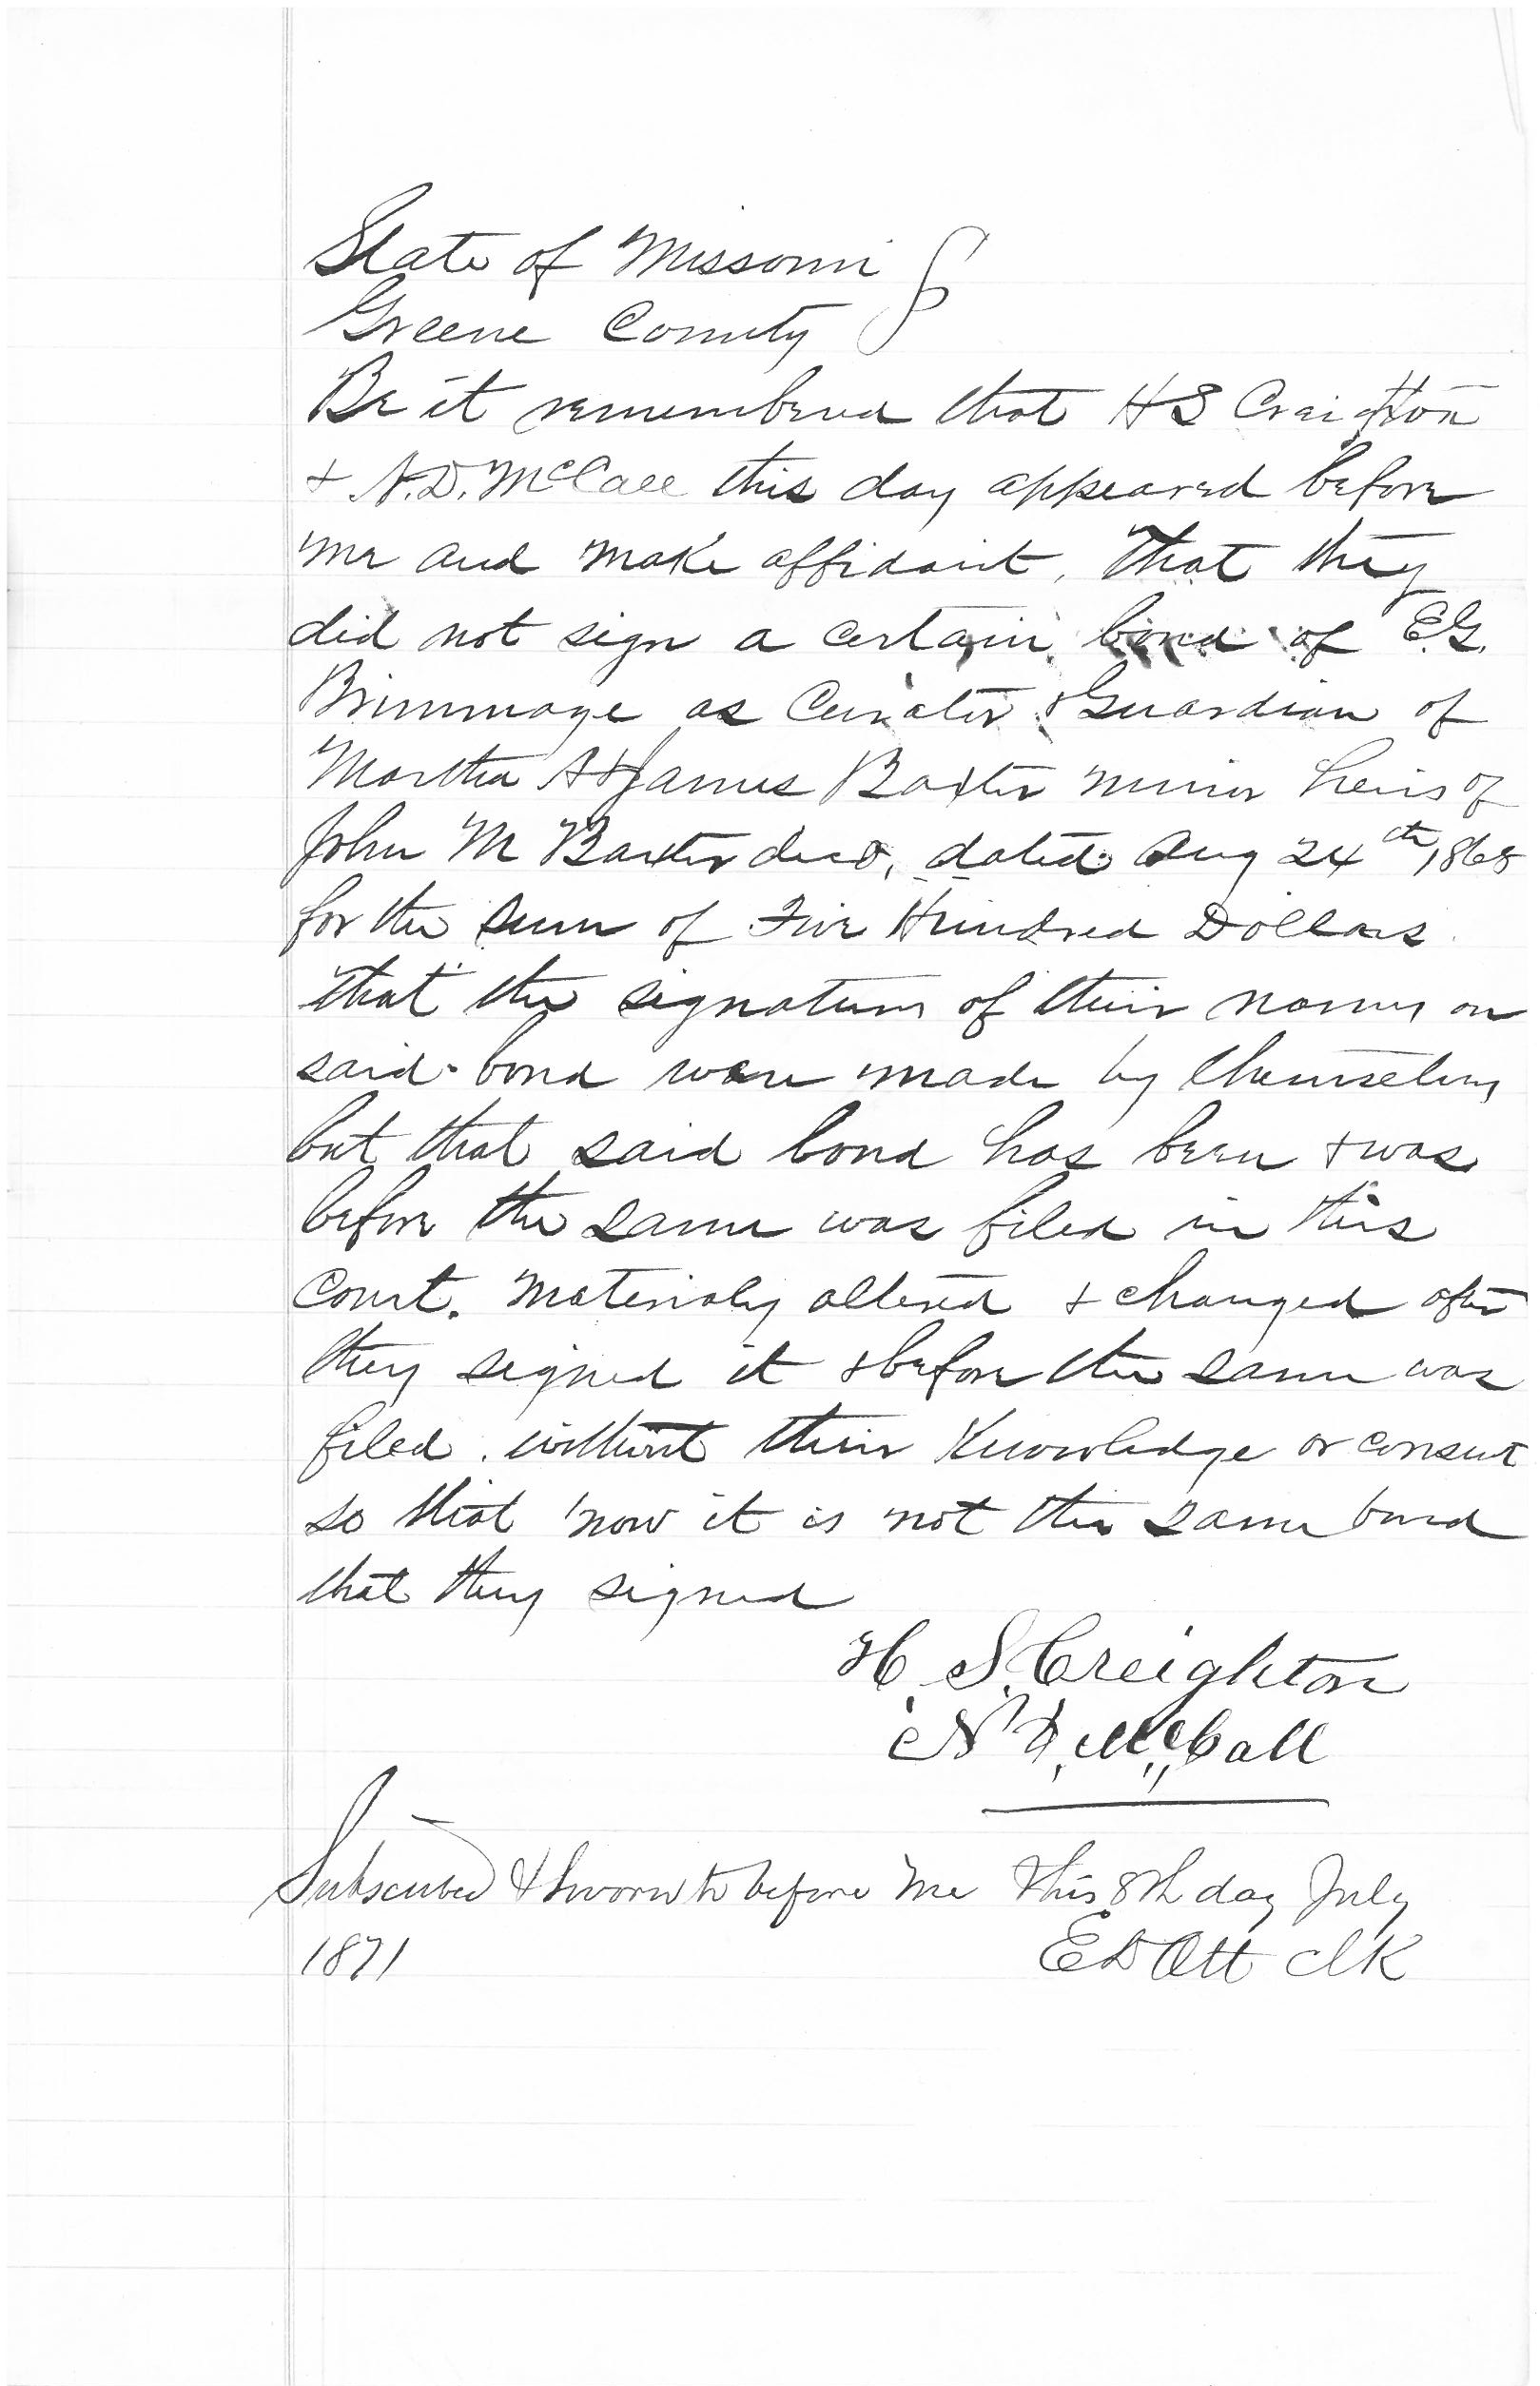 State of Missouri
Greene County
Be it remembered that H S Creighton
& N. D. McCall this day appeared before
me and make affidavit, that they
did not sign a certain bond of E. G.
Brimmage as Curator & Guardian of
Martha A & James Baxter minor heirs of
John M Baxter decd, dated Aug 24th, 1868
for the sum of Five Hundred Dollars.
that the signatures of their names on
said bond were made by themselves
but that said bond has been & was
before the same was filed in this
Court. materialy altered & changed after
they signed it & before the same was
filed. without their knowledge or consent
so that now it is not the same bond
that they signed
H. S. Creighton
N D. McCall
Subscribed & Sworn to before me this 8th day July
1871 E D Ott clk